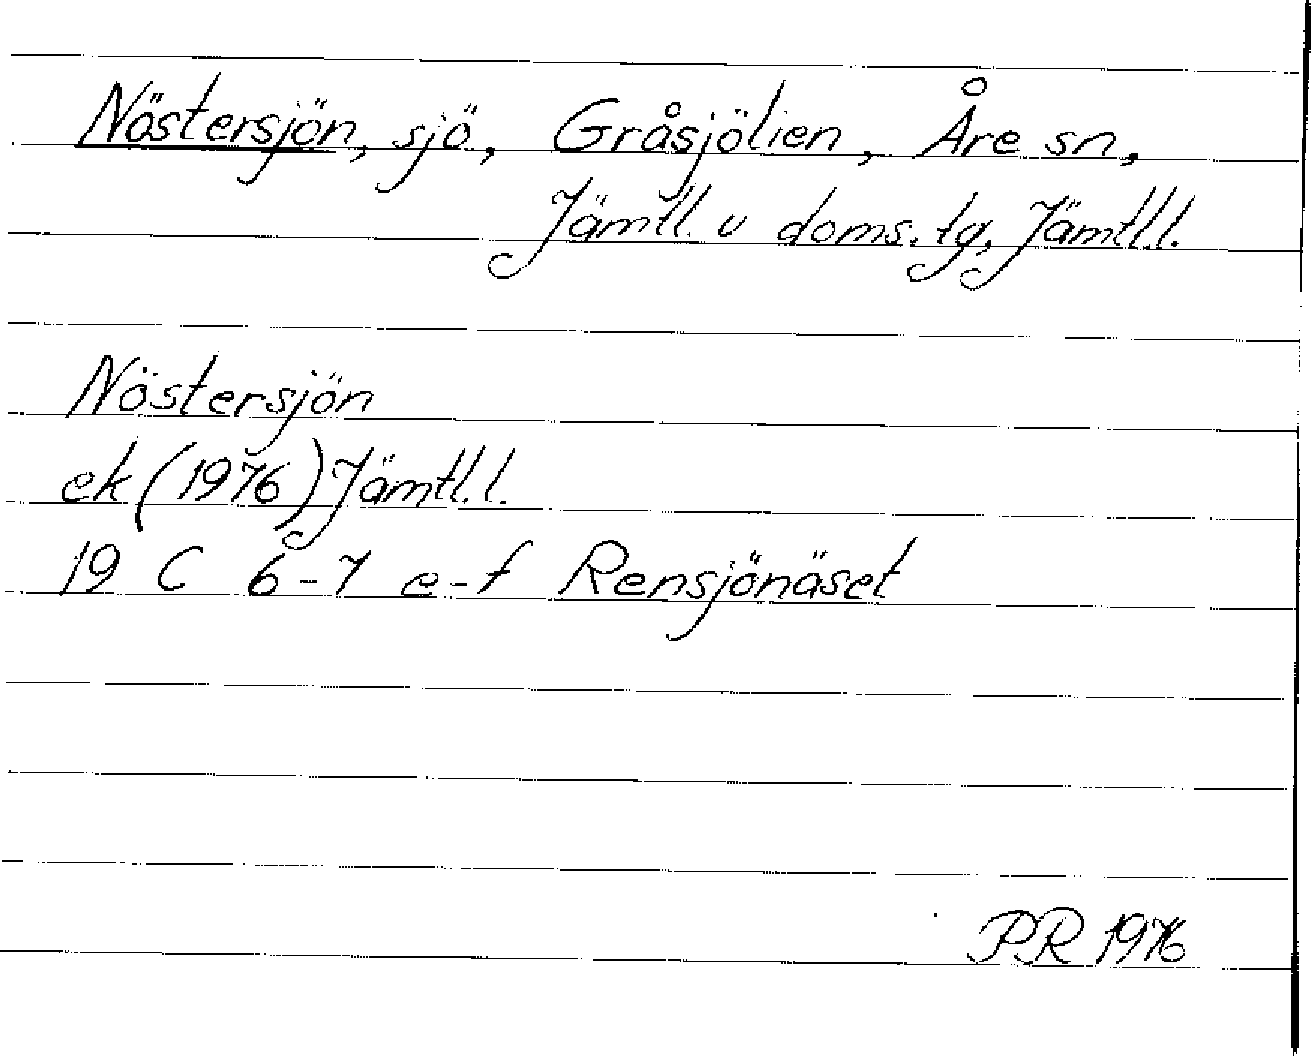 Nöstersjön, sjö, Gråsjölien, Åre sn,
Jämtl. v doms. tg, Jämtl.l.
Nöstersjön
ek (1976) Jämtl.l.
19 C 6-7 e-f Rensjönäset
PR 1976